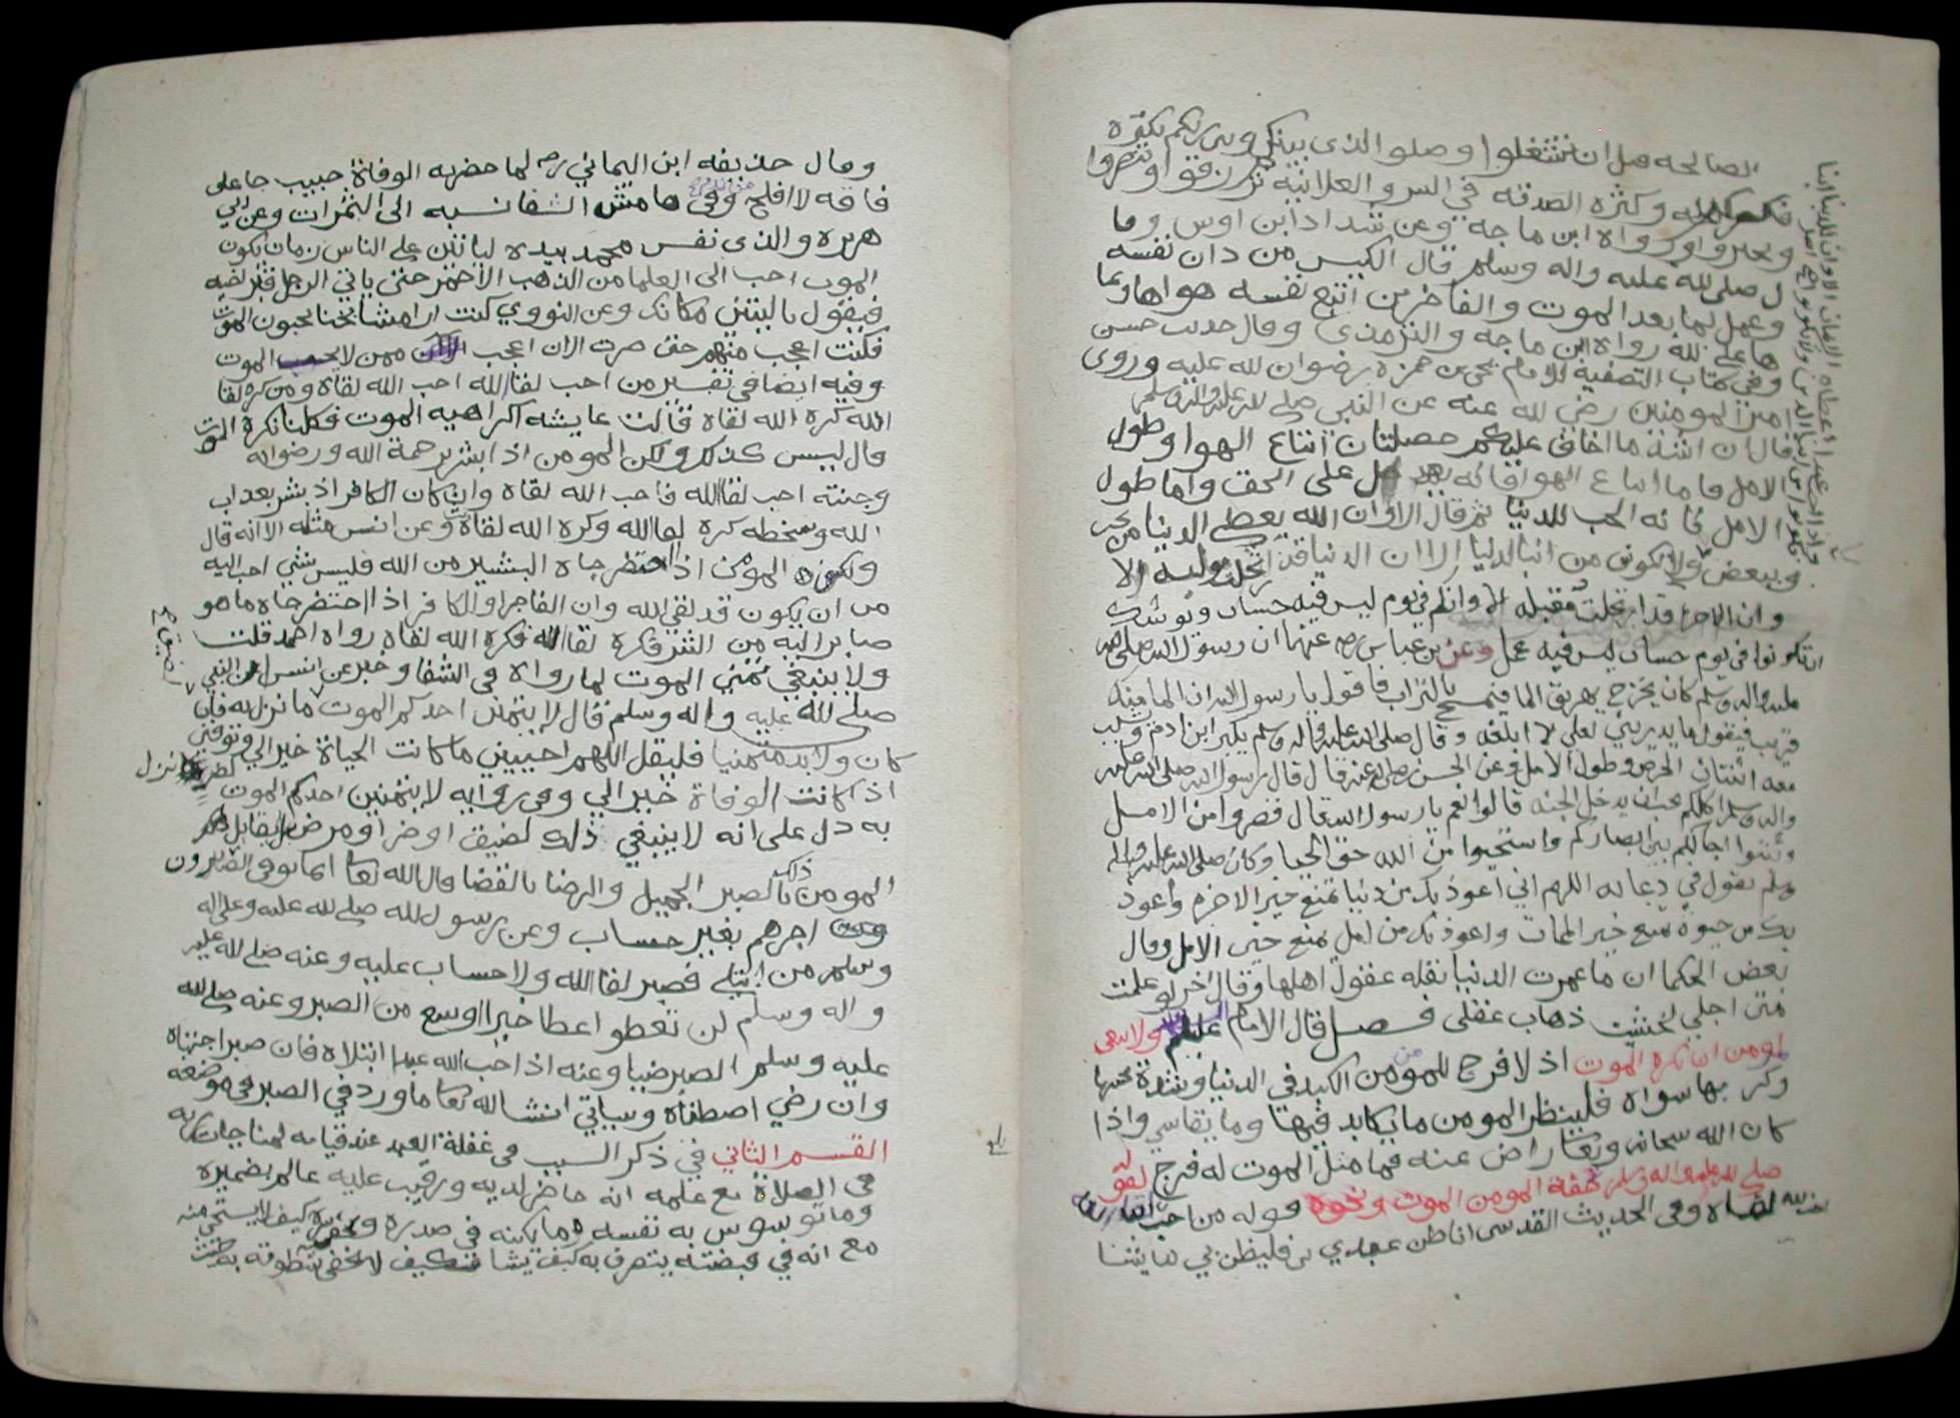 الصالحه قبل ان تشتغلوا وصلوا الذى بينكم وبين ربكم بكثرة
وكثرة الصدقه في السر والعلانيه ترزقوا وتنصروا
وتجبروا ورواه ابن ماجه وعن شداد ابن اوس وقا
ل صلى لله عليه واله وسلم قال الكيس من دان نفسه
وعمل لما بعد الموت والفاجر من اتبع نفسه هواها وتما
ها على لله رواه ابن ماجه والترمذي وقال حديث حسن
وفي كتاب التصفية للامام يحيى بن حمزه رضوان لله عليه وروى
امير المومنين رضى لله عنه عن النبي صلى لله عليه واله وسلم
قال ان اشد ما اخاف عليكم خصلتان اتباع الهوا وطول
الامل فاما اتباع الهوا فانه يعدل على الحق واما طول
الامل فانه الحب للدنيا ثم قال الا وان الله يعطي الدنيا من يحب
ويبغض ولا تكونو من ابنا الدنيا الا ان الدنيا قد ارتحلت موليه الا
وان الاخره قد ارتحلت مقبله الا وانكم في يوم ليس فيه حساب ويوشك
ان تكونوا في يوم حساب ليس فيه عمل وعن بن عباس رضي عنهما ان رسول الله صلى الله
عليه واله وسلم كان يخرج يهريق الما فيتمسح بالتراب فاقول يا رسول الله ان الما منه
قريب فيقول ما يدريني لعلي لا ابلغه وقال صلى الله عليه واله وسلم يكبر ابن ادم ويشب
معه اثنتان الحرص وطول الامل وعن الحسن رضي الله عنه قال قال رسول الله صلى الله عليه
واله وسلم اكلكم يحب ان يدخل الجنه قالوا نعم يا رسول الله قال قصروا من الامل
وثبتوا اجالكم بين ابصاركم واستحيوا من الله حق الحيا وكان صلى الله عليه واله
وسلم يقول في دعايه اللهم اني اعوذ بك من دنيا تمنع خير الاخره واعوذ
بك من حيوة تمنع خير الممات واعوذ بك من امل يمنع خير الامل وقال
بعض الحكما ان ما عمرت الدنيا بقله عقول اهلها وقال اخر لو علمت
متى اجلي لخشيت ذهاب عقلي فصل قال الامام عليلم ولا ينبغي
لمومن ان يكره الموت اذ لا فرح للمومن من الكبد في الدنيا وشدة محنها
وكربها سواه فلينظر المومن ما يكابد فيها وما يقاسي واذا
كان الله سبحانه وتعا راض عنه فما مثل الموت له فرج لقوله
صلى لله عليه واله وسلم تحفة المومن الموت ونحوه قوله من احب لقا الله
احب الله لقاه وفي الحديث القدسى انا ظن عبدي بي فليظن بي ما يشا
وقال حذيفه ابن اليماني رضي لما حضرته الوفاة حبيب جا على
فاقه لا افلح من ندم وفي هامش الشفا نسبه الى الثمرات وعن ابي
هريره والذى نفس محمد بيده لياتين على الناس زمان يكون
الموت احب الى العلما من الذهب الاحمر حتى ياتي الرجل قبر اخيه
فيقول يا ليتني مكانك وعن النووي كنت ارا مشايخنا يحبون الموت
فكنت اعجب منهم حتى صرت الان اعجب ممن لا يحب الموت
وفيه ايضا في تفسير من احب لقا الله احب الله لقاه ومن كره لقا
الله كره الله لقاه قالت عايشه اكراهيه الموت فكلنا نكره الموت
قال ليس كذلك ولكن المومن اذا بشر برحمة الله ورضوانه
وجنته احب لقا الله فاحب الله لقاه وان كان الكافر اذ بشر بعذاب
الله وسخطه كره لقا الله وكره الله لقاه وعن انس مثله الا انه قال
ولكن المومن اذا احتضر جاه البشير من الله فليس شي احب اليه
من ان يكون قد لقي الله وان الفاجر او الكافر اذا احتضر جاه ما هو
صاير اليه من الشر فكره لقا الله فكره الله لقاه رواه احمد قلت
ولا ينبغي تمني الموت لما رواه في الشفا وخبر عن انس عن النبي
صلى لله عليه واله وسلم قال لا يتمنين احدكم الموت ما نزل به فان
كان ولا بد متمنيا فليقل اللهم احييني ما كانت الحياة خير الي وتوفني
اذ كانت الوفاة خير الي وفي روايه لا يتمنين احدكم الموت لضر نزل
به دل على انه لا ينبغي ذلك لضيق او ضر او مرض بل يقابل
المومن ذلك بالصبر الجميل والرضا بالقضا قال الله تعا انما يوفى الصابرون
اجرهم بغير حساب وعن رسول لله صلى لله عليه وعلى اله
وسلم من ابتلي فصبر لقا الله ولا حساب عليه وعنه صلى لله عليه
واله وسلم لن تعطوا عطا خيرا اوسع من الصبر وعنه صلى لله
عليه وسلم الصبر ضيا وعنه اذا احب الله عبدا ابتلاه فان صبر اجتباه
وان رضي اصطفاه وسياتي انشا الله تعا ما ورد في الصبر في موضعه
القسم الثاني في ذكر السبب في غفلة العبد عند قيامه لمناجات ربه
في الصلاة مع علمه انه حاضر لديه ورقيب عليه عالم بضميره
وما توسوس به نفسه وما يكنه في صدره كيف لا يستحي منه
مع انه في قبضته يتصرف به كيف يشا فكيف لا يخفى سطوته